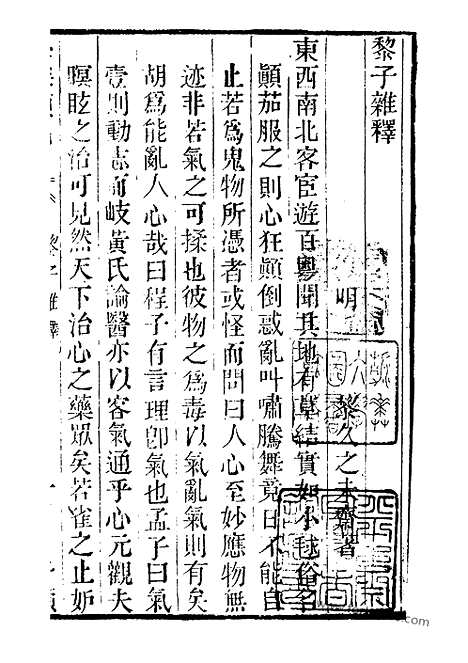 黎子雜釋
明 黎久之未齋著
東西南北客宦遊百粵聞其地有草結實如小毬俗名
顛茄服之則心狂顛倒惑亂叫嘯騰舞竟日不能自
止若為鬼物所憑者或怪而問曰人心至妙應物無
迹非若氣之可揉也彼物之為毒以氣亂氣則有矣
胡為能亂人心哉曰程子有言理卽氣也孟子曰氣
壹則動志而岐黃氏論醫亦以客氣通乎心元觀夫
瞑眩之治可見然天下治心之藥眾矣若雀之止妒
黎子雜釋